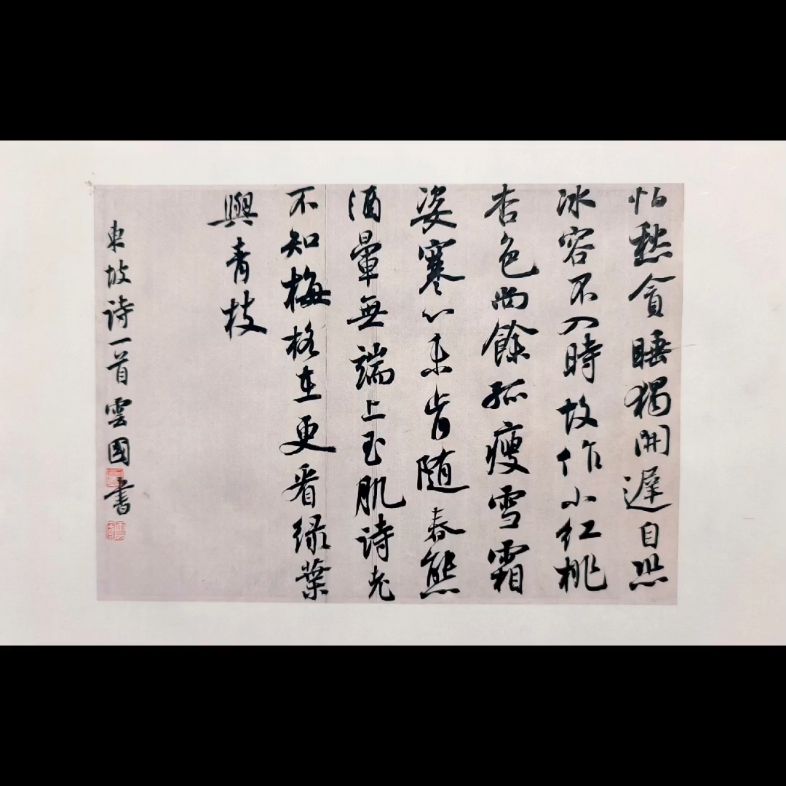 怕愁貪睡獨開遲自恐
冰容不入時故作小红桃
杏色尚餘孤瘦雪霜
姿寒心未肯随春態
酒暈無端上玉肌詩老
不知梅格在更看绿葉
與青枝
東坡诗一首雲國書